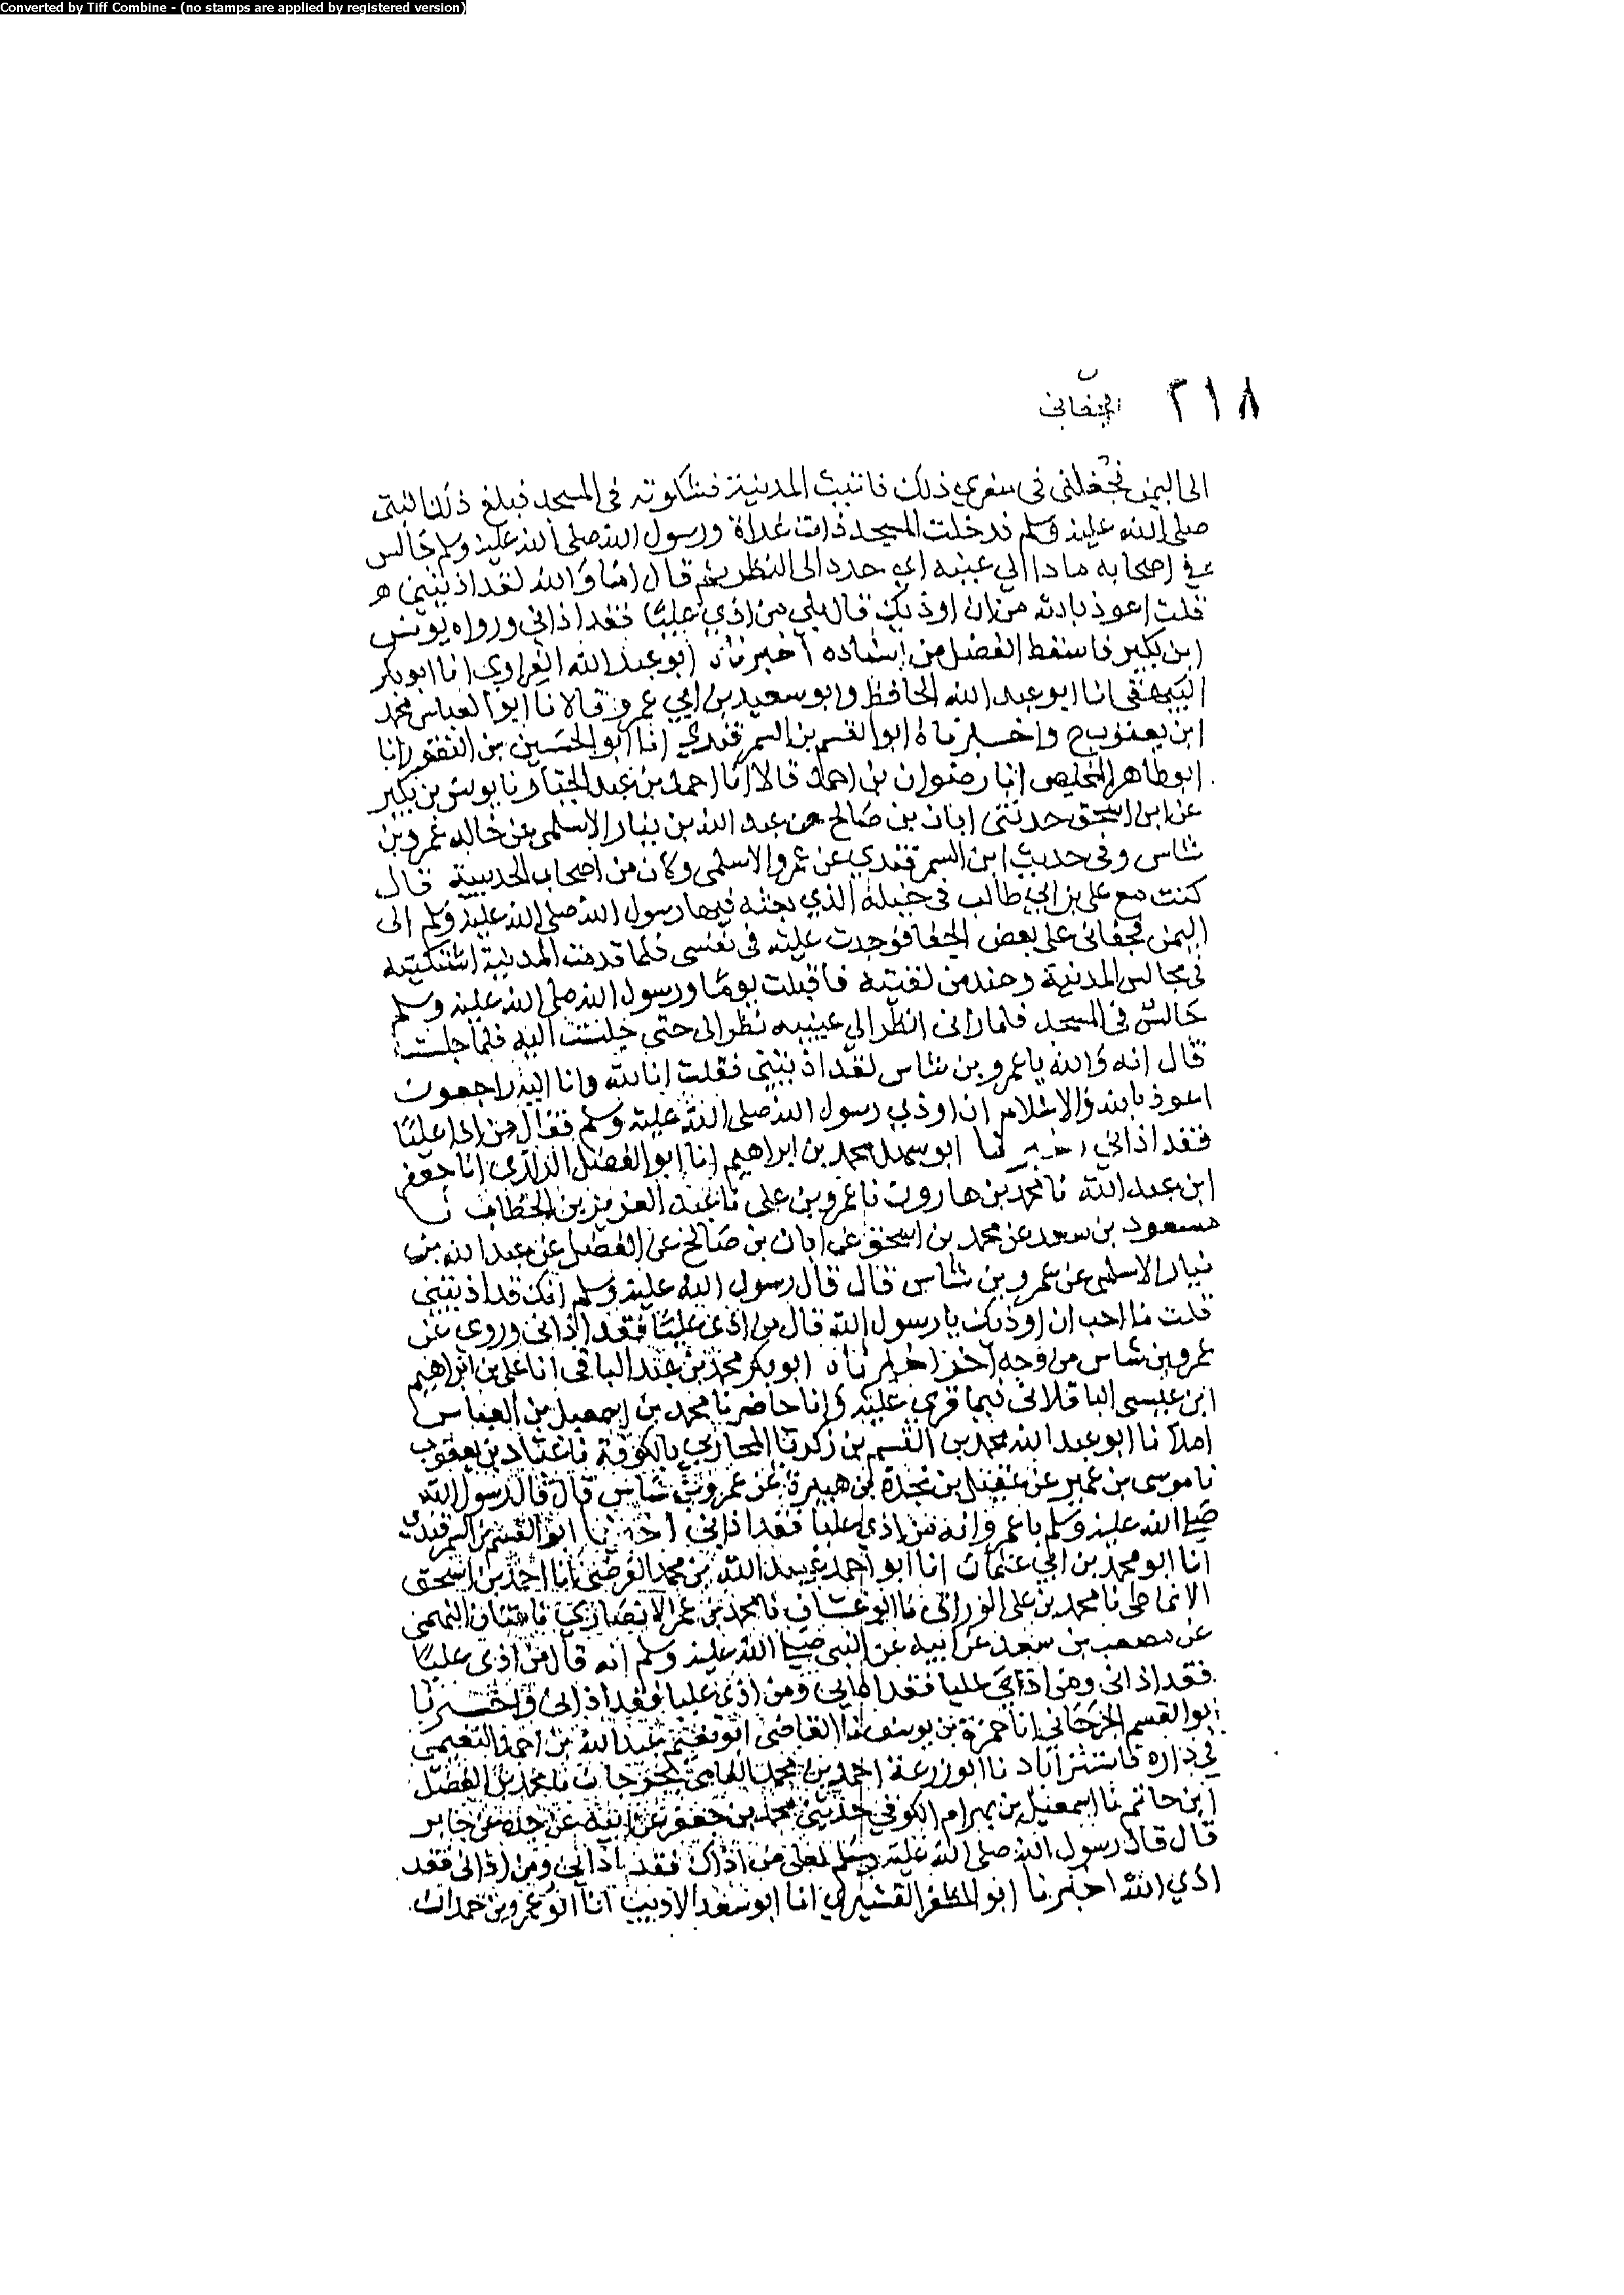 Converted by Tiff Combine - (no stamps are applied by registered version)
٢١٨
فجفانى
الى اليمن فجفانى فى سفري ذلك فاتيت المدينة فشكوته فى المسجد فبلغ ذلك النبى
صلى الله عليه وسلم فدخلت المسجد ذات غداة ورسول الله صلى الله عليه وسلم جالس
في اصحابه مادا الي عينيه اي حدد الى النظر ثم قال اما والله لقد اذيتنى
قلت اعوذ بالله من ان اوذيك قال بلى من اذي عليًا فقد اذانى ورواه يونس
ابن بكير فاسقط الفضل من اسناده اخبرناه ابو عبد الله الفراوي انا ابو بكر
البيهقى انا ابو عبد الله الحافظ وابو سعيد بن ابي عمرو قالا نا ابو العباس محمد
ابن يعقوب ح واخبرناه ابو القسم بن السمرقندي انا ابو الحسين بن النقور انا
ابو طاهر المخلص انا رضوان بن احمد قالا نا احمد بن عبد الجبار نا يونس بن بكير
عن ابن اسحق حدثنى ابان بن صالح عن عبد الله بن نيار الاسلمى عن خاله عمرو بن
شاس وفى حديث ابن السمرقندي عن عمرو الاسلمى وكان من اصحاب الحديبية قال
كنت مع على بن ابي طالب فى خيله الذي بعثه فيها رسول الله صلى الله عليه وسلم الى
اليمن فجفانى على بعض الجفا فوجدت عليه فى نفسى فلما قدمت المدينة اشتكيته
فى مجالس المدينة وعند من لقيته فاقبلت يومًا ورسول الله صلى الله عليه وسلم
جالس فى المسجد فلما رانى انظر الي عينيه نظر الى حتى جلست اليه فلما جلست
قال انه والله يا عمرو بن شاس لقد اذيتنى فقلت انا لله وانا اليه راجعون
اعوذ بالله والاسلام ان اوذي رسول الله صلى الله عليه وسلم فقال من اذا عليًا
فقد اذاني اخبرنا ابو سهل محمد بن ابراهيم انا ابو الفضل الرازى انا جعفر
ابن عبد الله نا محمد بن هارون نا عمرو بن على نا عبد العزيز بن الخطاب نا
مسعود بن سعد عن محمد بن اسحق عن ابان بن صالح عن الفضل عن عبد الله بن
نيار الاسلمى عن عمرو بن شاس قال قال رسول الله عليه وسلم انك قد اذيتنى
قلت ما احب ان اوذيك يا رسول الله قال من اذى عليًا فقد اذانى وروي عن
عمرو بن شاس من وجه اخر اخبرناه ابو بكر محمد بن عبد الباقى انا على بن ابراهيم
ابن عيسى الباقلانى فيما قرى عليه وانا حاضر نا محمد بن اسمعيل بن العباس
املا نا ابو عبد الله محمد بن القسم بن زكريا المحاربي بالكوفة نا عباد بن يعقوب
نا موسى بن عمير عن عقيل بن نجدة بن هبيرة عن عمرو بن شاس قال قال رسول الله
صلى الله عليه وسلم يا عمرو انه من اذي عليا فقد اذانى اخبرنا ابو القسم بن السمرقندى
انا ابو محمد بن ابي عثمان انا ابو احمد عبيد الله بن محمد الفرضى نا احمد بن اسحق
الانماطى نا محمد بن على الوراق نا ابو غسان نا محمد بن عمر الانصاري نا التميمى
عن مصعب بن سعد عن ابيه عن النبى صلى الله عليه وسلم انه قال من اذى عليًا
فقد اذانى ومن اذى عليا فقد اذانى ومن اذى عليا فقد اذانى واخبرنا
ابو القسم الجرجانى انا حمزة بن يوسف نا القاضى ابو نعيم عبد الله بن احمد النعيمى
في داره باستراباد نا ابو زرعة احمد بن محمد القاضى بجرجان نا محمد بن الفضل
ابن حاتم نا اسمعيل بن بهرام الكوفى حدثنى محمد بن جعفر عن ابيه عن جده عن جابر
قال قال رسول الله صلى الله عليه وسلم لعلى من اذاك فقد اذانى ومن اذانى فقد
اذي الله اخبرنا ابو المظفر القشيري انا ابو سعد الاديب انا ابو عمرو بن حمدان